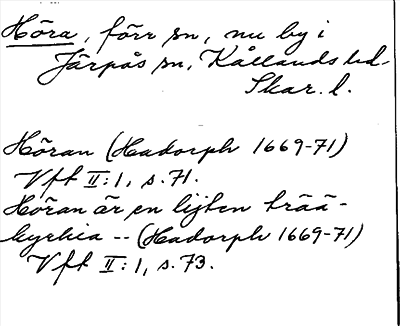 Höra, förr sn, nu by i
Järpås sn, Kållands hd.
Skar. l.
Höran (Hadorph 1669-71)
Vft II:1, s. 71.
Höran är en lijten trää-
kyrkia -- (Hadorph 1669-71)
Vft II:1, s. 73.